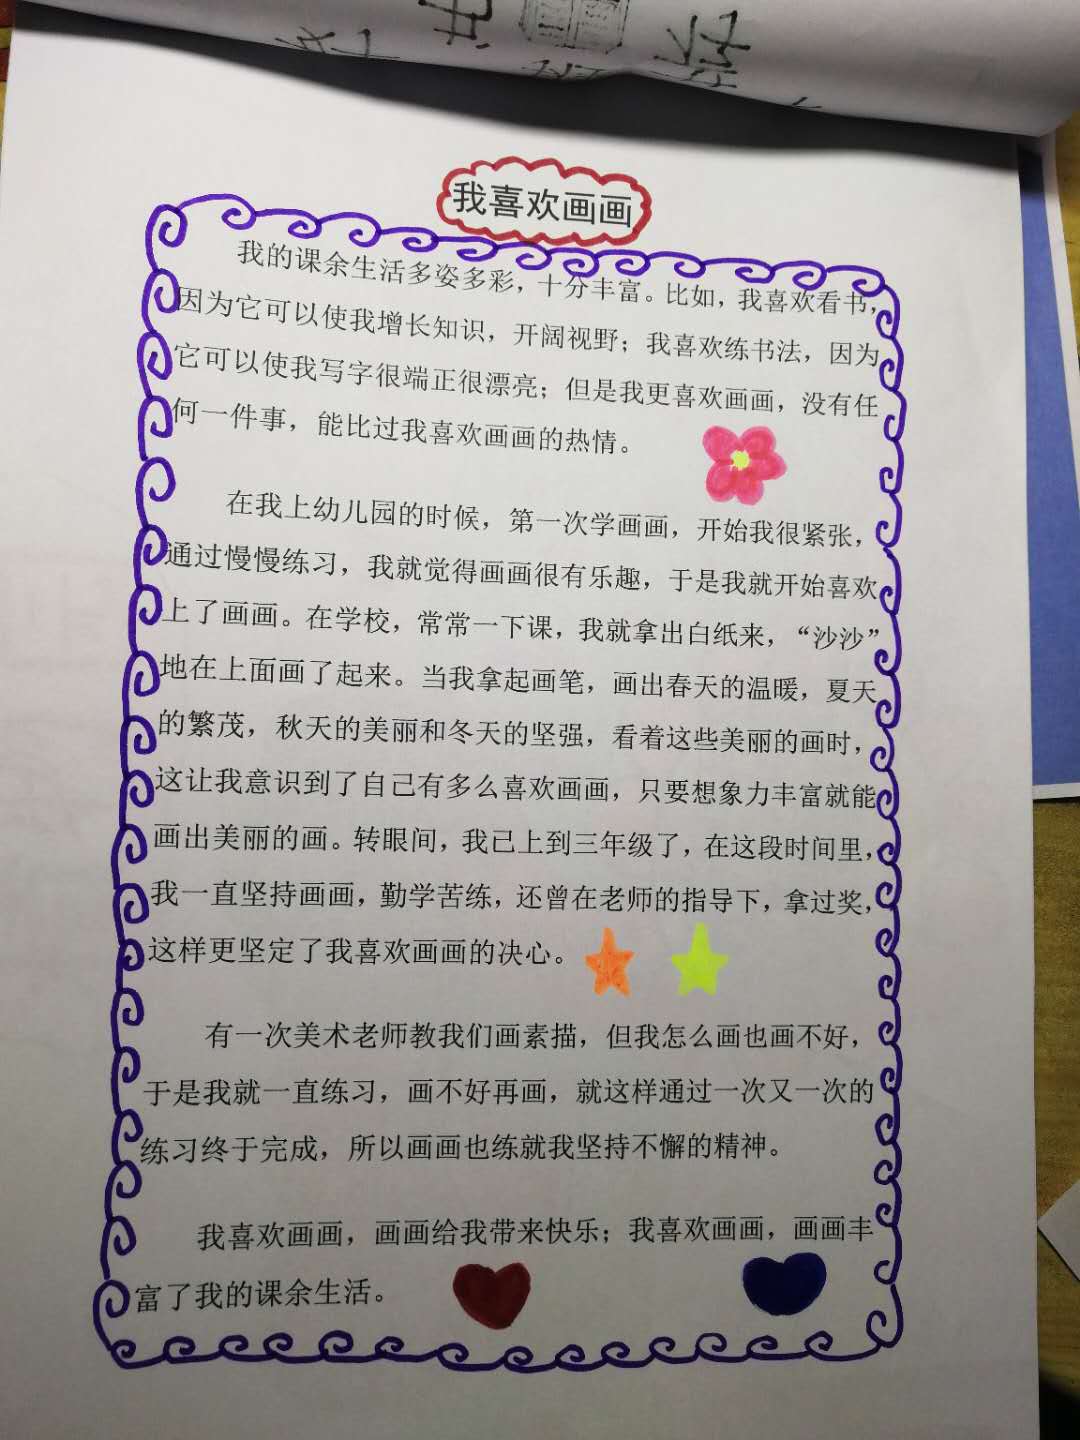 我喜欢画画
我的课余生活多姿多彩，十分丰富。比如，我喜欢看书，
因为它可以使我增长知识，开阔视野；我喜欢练书法，因为
它可以使我写字很端正很漂亮；但是我更喜欢画画，没有任
何一件事，能比过我喜欢画画的热情。
在我上幼儿园的时候，第一次学画画，开始我很紧张，
通过慢慢练习，我就觉得画画很有乐趣，于是我就开始喜欢
上了画画。在学校，常常一下课，我就拿出白纸来，“沙沙”
地在上面画了起来。当我拿起画笔，画出春天的温暖，夏天
的繁茂，秋天的美丽和冬天的坚强，看着这些美丽的画时，
这让我意识到了自己有多么喜欢画画，只要想象力丰富就能
画出美丽的画。转眼间，我已上到三年级了，在这段时间里，
我一直坚持画画，勤学苦练，还曾在老师的指导下，拿过奖，
这样更坚定了我喜欢画画的决心。
有一次美术老师教我们画素描，但我怎么画也画不好，
于是我就一直练习，画不好再画，就这样通过一次又一次的
练习终于完成，所以画画也练就我坚持不懈的精神。
我喜欢画画，画画给我带来快乐；我喜欢画画，画画丰
富了我的课余生活。